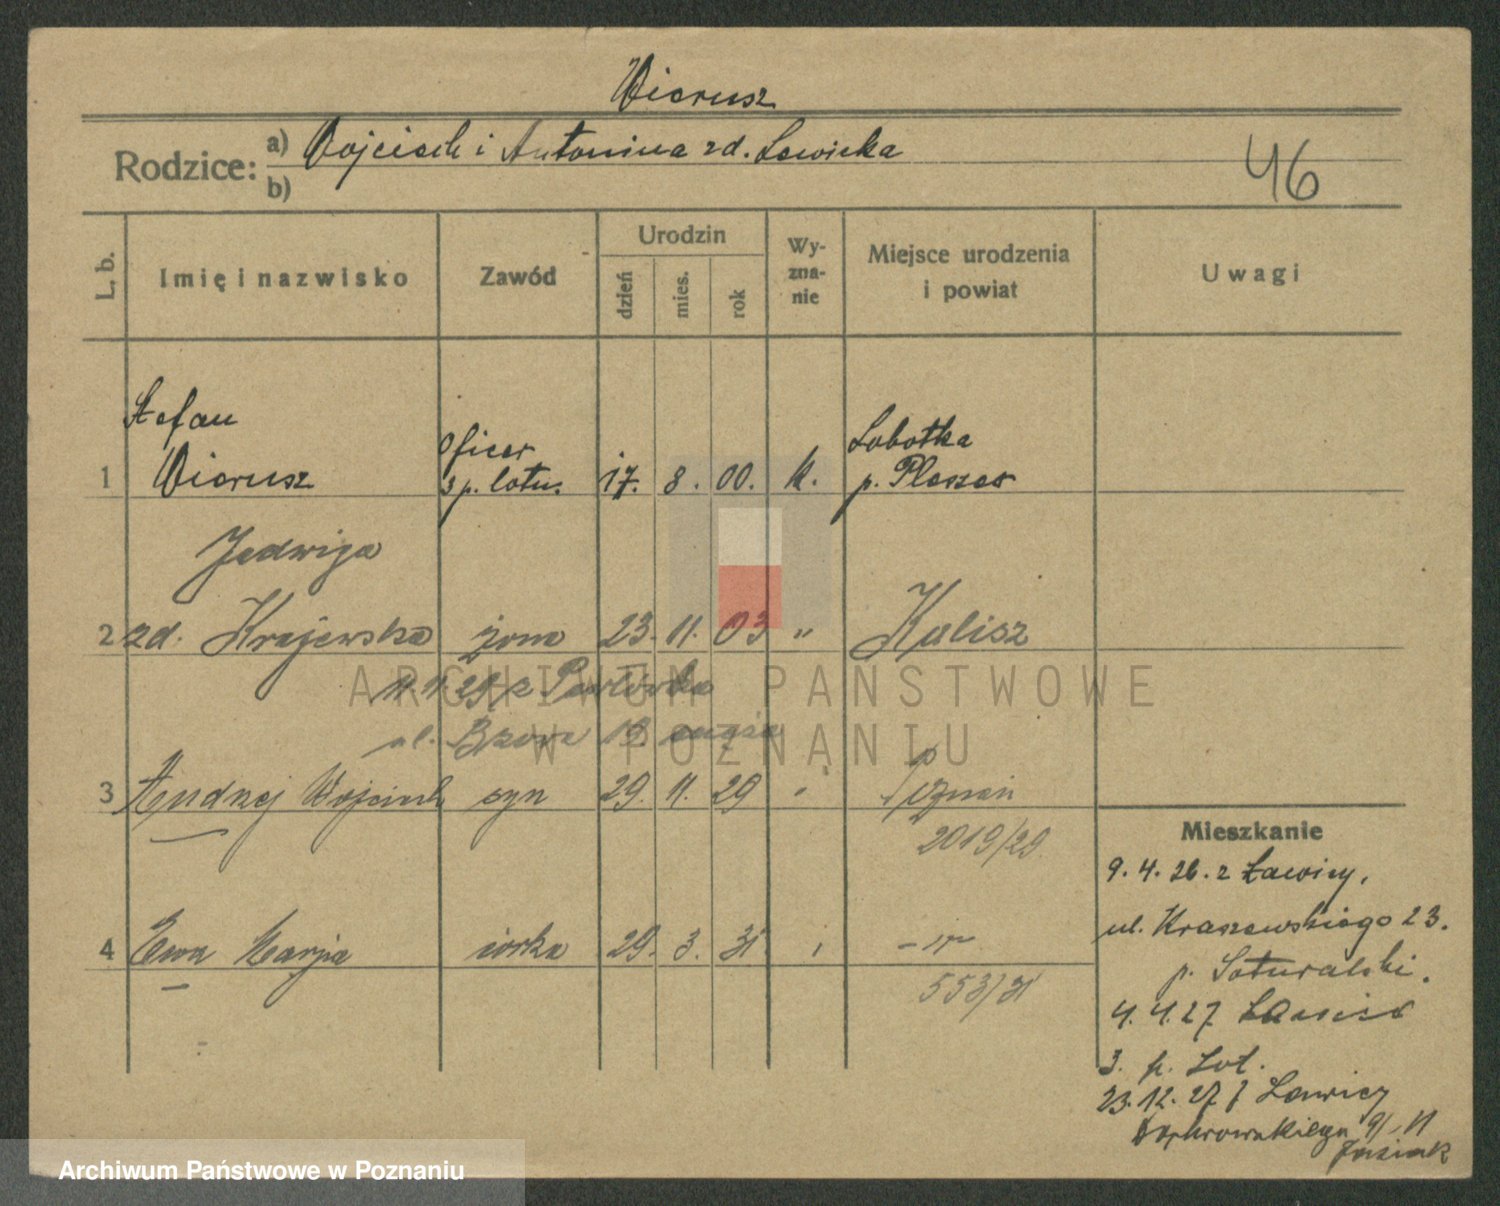 Wiorusz
Rodzice:
a) Wojciech i Antonina zd. Lewicka
b)
46
L. b.
Imię i nazwisko
Zawód
Urodzin
dzień
mies.
rok
Wy-
zna-
nie
Miejsce urodzenia
i powiat
Uwagi
Stefan
Oficer
Lobotka
1 Wiorusz 3 p. lotn. 17. 8. 00. k. p. Pleszew
Jadwiga
2 zd. Krajewska żona 23. 11. 03 " Kalisz
ARCHIWUM PAŃSTWOWE
W POZNANIU
3 Andrzej Wojciech syn 29. 11. 29 " Poznań
2019/29.
4 Ewa Marja córka 29. 3. 31
553/31
Mieszkanie
9. 4. 26. z Ławicy,
ul. Kraszewskiego 23.
4. 4. 27 Ławica
3. p. Lot.
23. 12. 27 z Ławicy
Archiwum Państwowe w Poznaniu